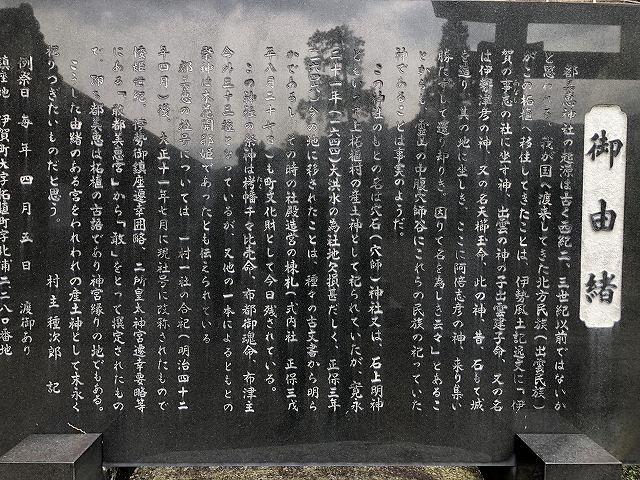 御由緒
都美恵神社の起源は古く西紀二、三世紀以前ではないか
と思われる。我が国へ渡来してきた北方民族(出雲民族)
がこの柘植へ移住してきたことは、伊勢風土記逸文に「伊
賀の事志の社に坐す神、出雲の神の子出雲建子命、又の名
は伊勢津彦の神、又の名天櫛玉命、此の神、昔、石もて城
を造り、其の地に坐しき、ここに阿倍志彦の神、来り集い
勝たずして還り却りき、因りて名を為しき云々」とあるこ
とから、霊山の中腹穴師谷にこれらの民族の祀っていた
神であることは事実のようだ。
この神社のもとの名は穴石(穴師)神社又は、石上明神
といって上柘植村の産土神として祀られていたが、寛永
二十一年(一六四四)大洪水の為社地欠損甚だしく、正保三年
今の地に移されたことは、種々の古文書から明ら
かであるし、その時の社殿造営の棟札(式内社 正保三戌
年八月二十 も町文化財として今日残されている。
この神社の祭神は栲幡千々比売命 布都御魂命 布津主
今外三十三柱となっているが、又他の一本によるともとの
祭神は木花開耶姫であったとも伝えられている
都美恵の社号については、一村一社の合祀(明治四十二
年四月)後、大正十一年七月に現社号に改称されたもので
倭姫世記、伊勢御鎮座遷幸囲略、二所皇太神宮遷幸要略等
にある「敢都美恵宮」から「敢」をとって撰定されたもの
で、即ち都美恵は柘植の古語であり神宮縁りの地でもある。
こうした由緒のある宮をわれわれの産土神として末永く
祀りつぎたいものだと思う。
村主種次郎 記
例祭日 毎年四月五日 渡御あり
鎮座地 伊賀町大字柘植町字北浦二二八〇番地